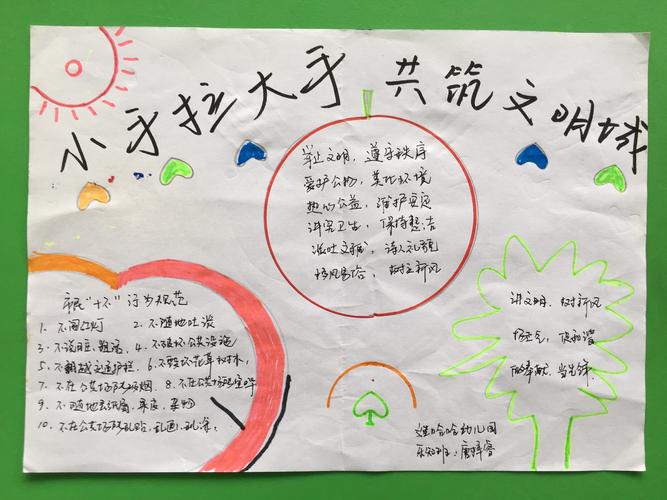 小手拉大手 共筑文明城
举止文明，遵守秩序
爱护公物，美化环境
热心公益，维护安定
讲究卫生，保持整洁
谈吐文雅，诗人礼貌
移风易俗，树立新风
市民"十不"行为规范
1、不闯红灯 2、不随地吐谈
3、不说脏、粗话，4、不破坏公共设施
5、不翻越交通护栏，6、不要坏花草树木，
7、不在公共场所吸烟。8、不在公共场所喧哗
9、不随地丢纸屑、果皮、杂物
10、不在公共场所乱贴、乱画、乱涂。
讲文明，树新风
扬正气，促和谐
做奉献，当先锋
幼儿园